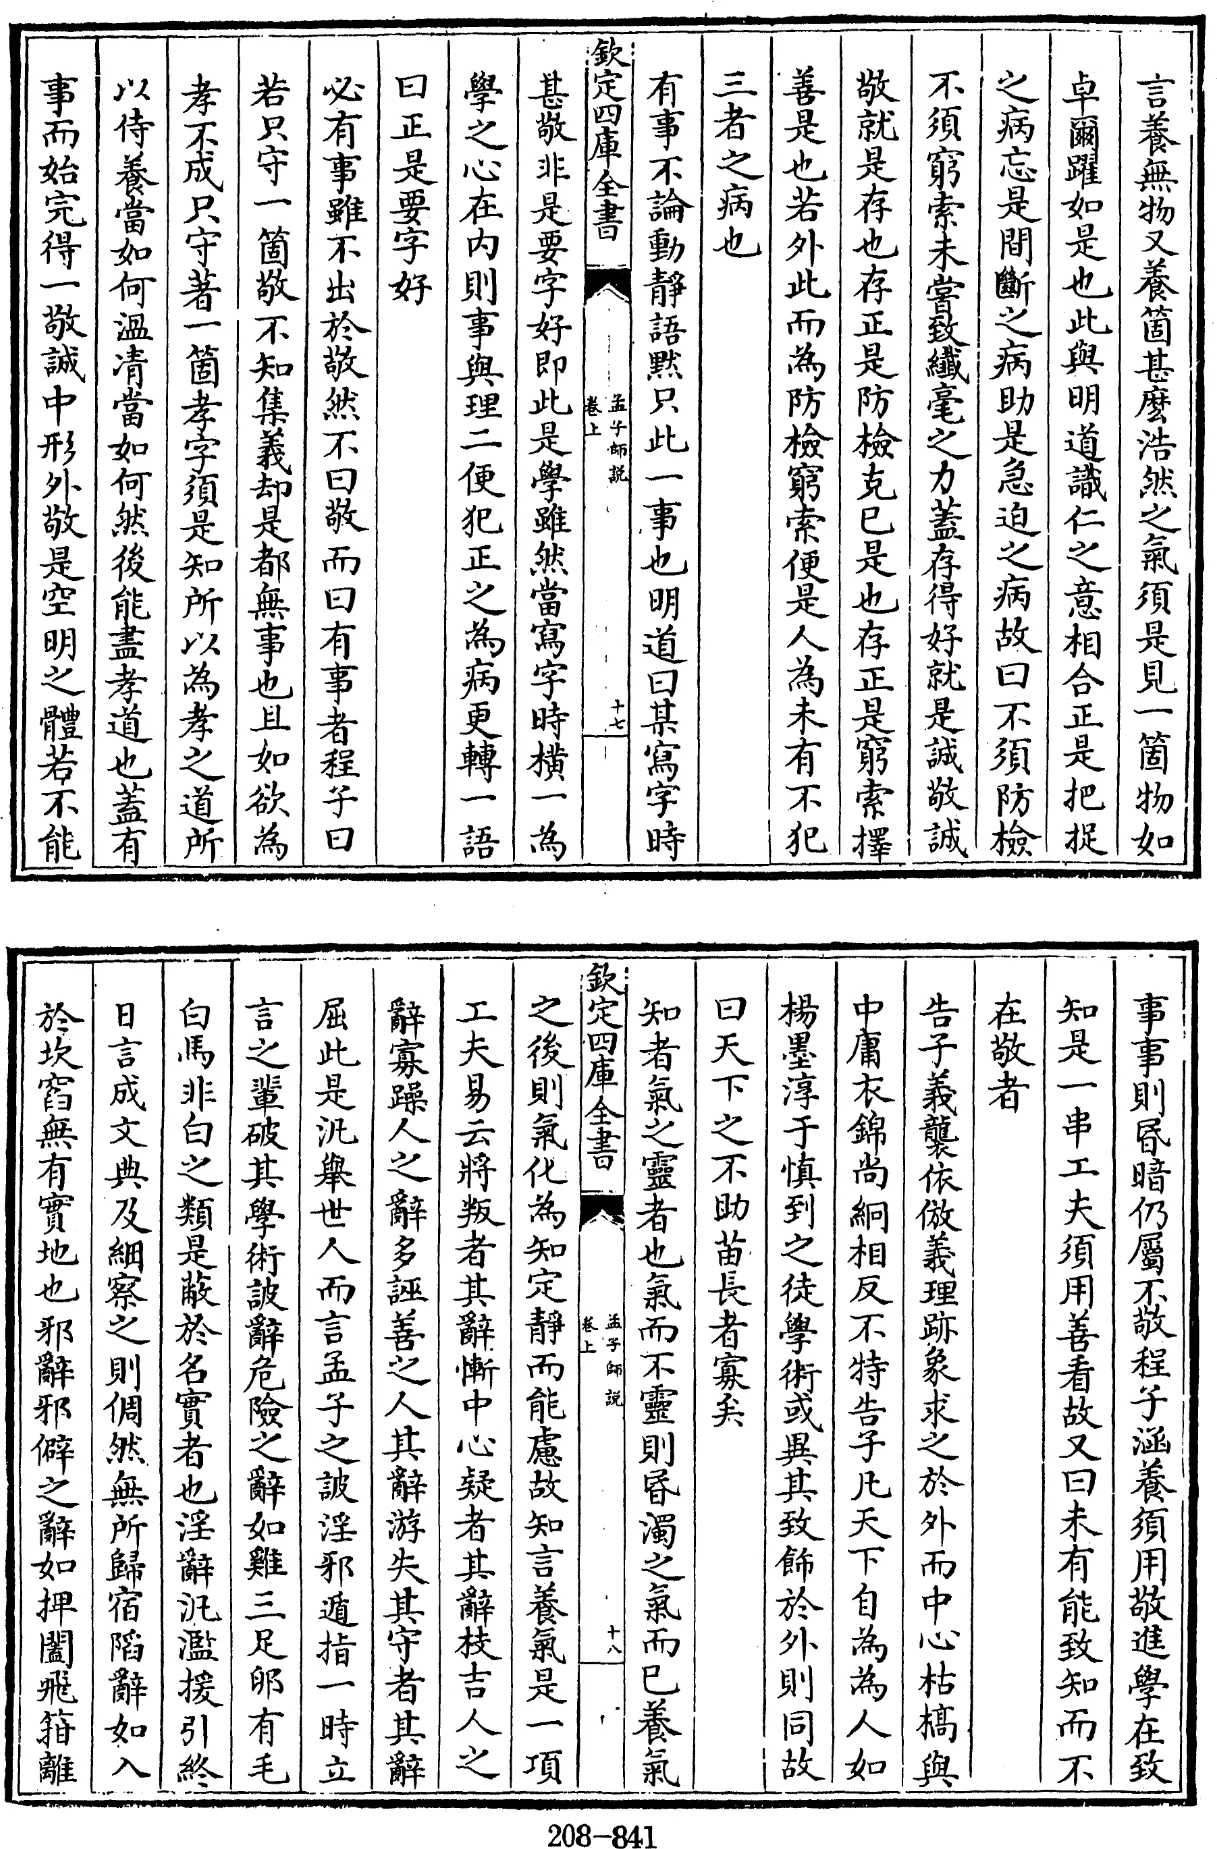 言養無物又養箇甚麽浩然之氣須是見一箇物如
卓爾躍如是也此與明道識仁之意相合正是把捉
之病忘是間斷之病助是急迫之病故曰不須防檢
不須窮索未嘗致纖毫之力蓋存得好就是誠敬誠
敬就是存也存正是防檢克已是也存正是窮索擇
善是也若外此而為防檢窮索便是人為未有不犯
三者之病也
有事不論動靜語黙只此一事也明道曰某寫字時
欽定四庫全書
孟子師説
卷上
十七
甚敬非是要字好即此是學雖然當寫字時横一為
學之心在内則事與理二便犯正之為病更轉一語
曰正是要字好
必有事雖不出於敬然不曰敬而曰有事者程子曰
若只守一箇敬不知集義却是都無事也且如欲為
孝不成只守著一箇孝字須是知所以為孝之道所
以侍養當如何溫凊當如何然後能盡孝道也蓋有
事而始完得一敬誠中形外敬是空明之體若不能
事事則昬暗仍屬不敬程子涵養須用敬進學在致
知是一串工夫須用善看故又曰未有能致知而不
在敬者
告子義襲依倣義理跡象求之於外而中心枯槁與
中庸衣錦尚絅相反不特告子凡天下自為為人如
楊墨淳于慎到之徒學術或異其致飾於外則同故
曰天下之不助苗長者寡矣
知者氣之靈者也氣而不靈則昬濁之氣而已養氣
欽定四庫全書
孟子師説
卷上
十八
之後則氣化為知定靜而能慮故知言養氣是一項
工夫易云將叛者其辭慚中心疑者其辭枝吉人之
辭寡躁人之辭多誣善之人其辭游失其守者其辭
屈此是汎舉世人而言孟子之詖淫邪遁指一時立
言之輩破其學術詖辭危險之辭如雞三足卵有毛
白馬非白之類是蔽於名實者也淫辭汎濫援引終
日言成文典及細察之則倜然無所歸宿陷辭如入
於坎窞無有實地也邪辭邪僻之辭如捭闔飛箝離
208-841